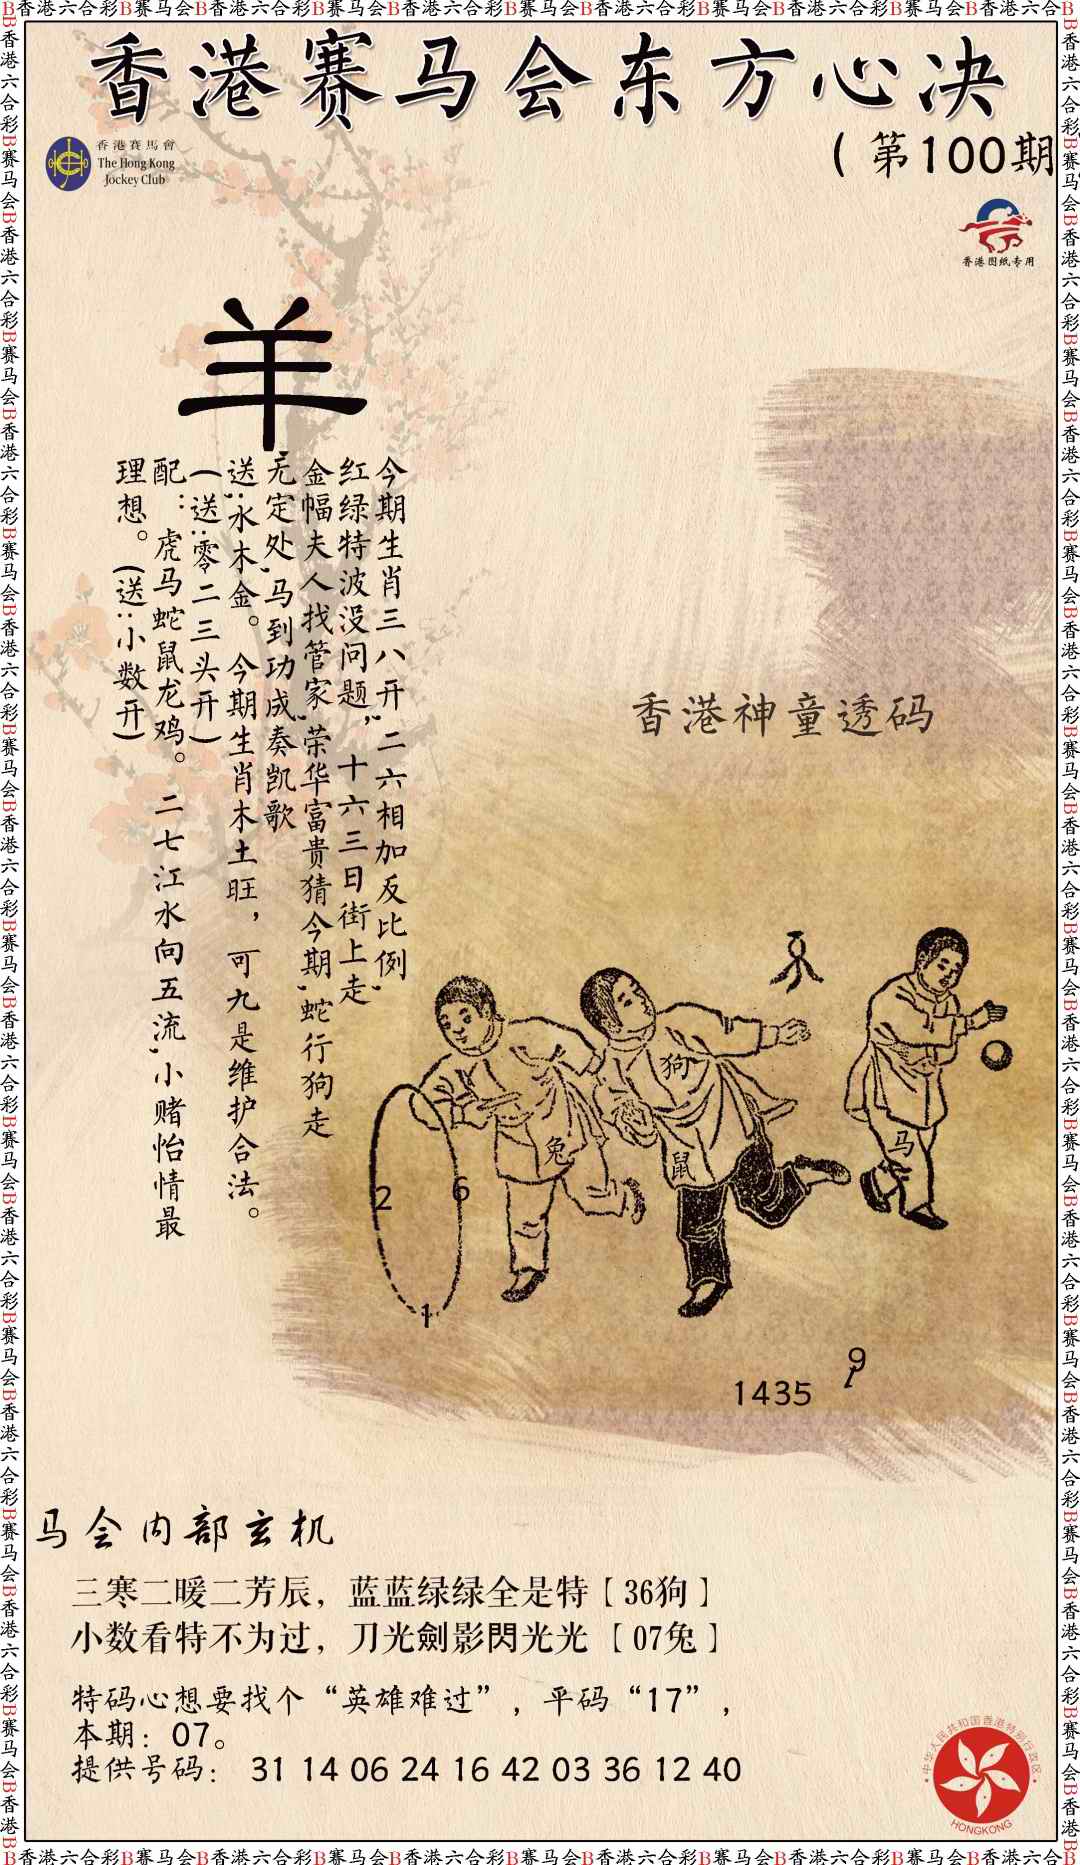 香港赛马会东方心决
(第100期
香港賽馬會
The Hong Kong
Jockey Club
香港图纸专用
羊
今期生肖三八开,二六相加反比例,
红绿特波没问题, 十六三日街上走
金幅夫人找管家,荣华富贵猜今期,蛇行狗走
无定处,马到功成奏凯歌
送:水木金。今期生肖木土旺,可九是维护合法。
(送:零二三头开)
配:虎马蛇鼠龙鸡。二七江水向五流,小赌怡情最
理想。(送:小数开)
香港神童透码
狗
兔
鼠
马
2
6
1
9
1
1435
马会内部玄机
三寒二暖二芳辰，蓝蓝绿绿全是特【36狗】
小数看特不为过，刀光劍影閃光光【07兔】
特码心想要找个“英雄难过”，平码“17”，
本期：07。
提供号码： 31 14 06 24 16 42 03 36 12 40
中华人民共和国香港特别行政区
HONGKONG
B香港六合彩B赛马会B香港六合彩B赛马会B香港六合彩B赛马会B香港六合彩B赛马会B香港六合彩B赛马会B香港六合B